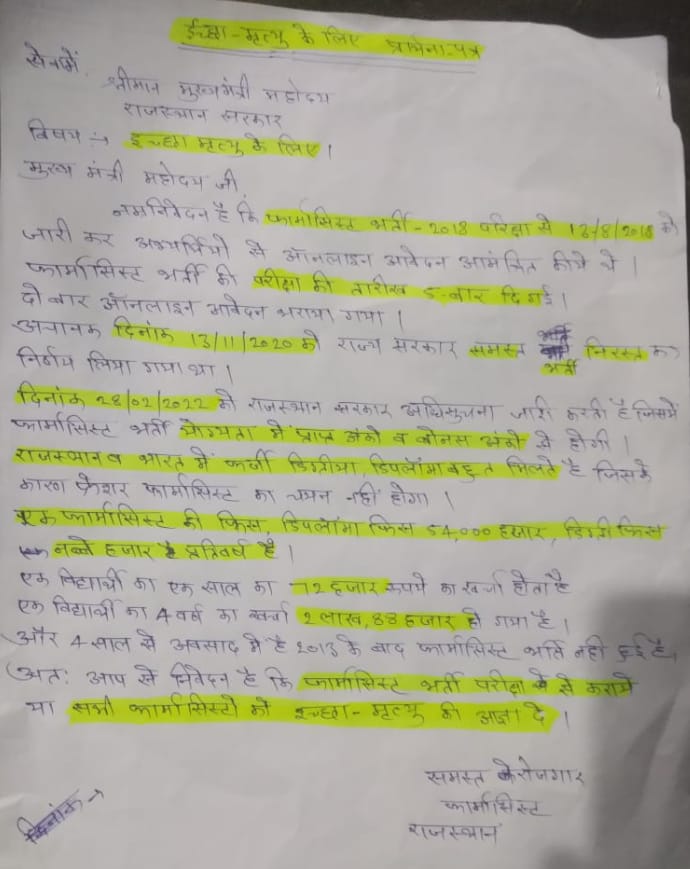 ईच्छा-मृत्यु के लिए प्रार्थना-पत्र
सेवामें,
श्रीमान मुख्यमंत्री महोदय
राजस्थान सरकार
विषय :→ इच्छा मृत्यु के लिए।
मुख्य मंत्री महोदय जी,
नम्रनिवेदन है कि फार्मासिस्ट भर्ती-2018 परिक्षा से 13/8/2018 को
जारी कर अभ्यर्थियो से ऑनलाइन आवेदन आमंत्रित कीये थे।
फार्मासिस्ट भर्ती की परीक्षा की तारीख 5-बार दि गई।
दो बार ऑनलाइन आवेदन भराया गया।
अचानक दिनांक 13/11/2020 को राज्य सरकार समस्त भर्ती निरस्त का
निर्णय लिया गया था।
दिनांक 28/02/2022 को राजस्थान सरकार अधिसुचना जारी करती है जिसमें
फार्मासिस्ट भर्ती योग्यता में प्राप्त अंको व बोनस अंको से होगी।
राजस्थान व भारत में फर्जी डिग्रीया, डिपलोमा बहुत मिलते है जिसके
कारण फ्रेशर फार्मासिस्ट का चयन नही होगा।
एक फार्मासिस्ट की किस, डिपलोमा किस 54,000 हजार, डिग्री किस
नब्बे हजार है प्रतिवर्ष है।
एक विद्यार्थी का एक साल का 72 हजार रूपये का खर्चा होता है
एक विद्यार्थी का 4 वर्ष का खर्चा 2 लाख, 88 हजार हो गया है।
और 4 साल से अवसाद मे है 2013 के बाद फार्मासिस्ट भर्ति नही हुई है।
अत: आप से निवेदन है कि फार्मासिस्ट भर्ती परीक्षा से कराये
या सभी फार्मासिस्टो को इच्छा-मृत्यु की आज्ञा दे।
समस्त बेरोजगार
फार्मासिस्ट
राजस्थान
दिनांक→